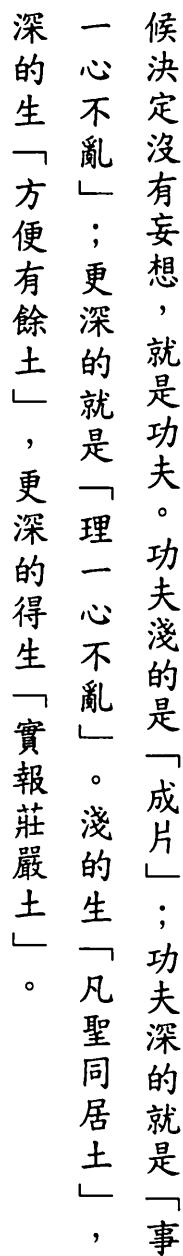 候決定沒有妄想，就是功夫。功夫淺的是「成片」；功夫深的就是「事
一心不亂」；更深的就是「理一心不亂」。淺的生「凡聖同居土」，
深的生「方便有餘土」，更深的得生「實報莊嚴土」。